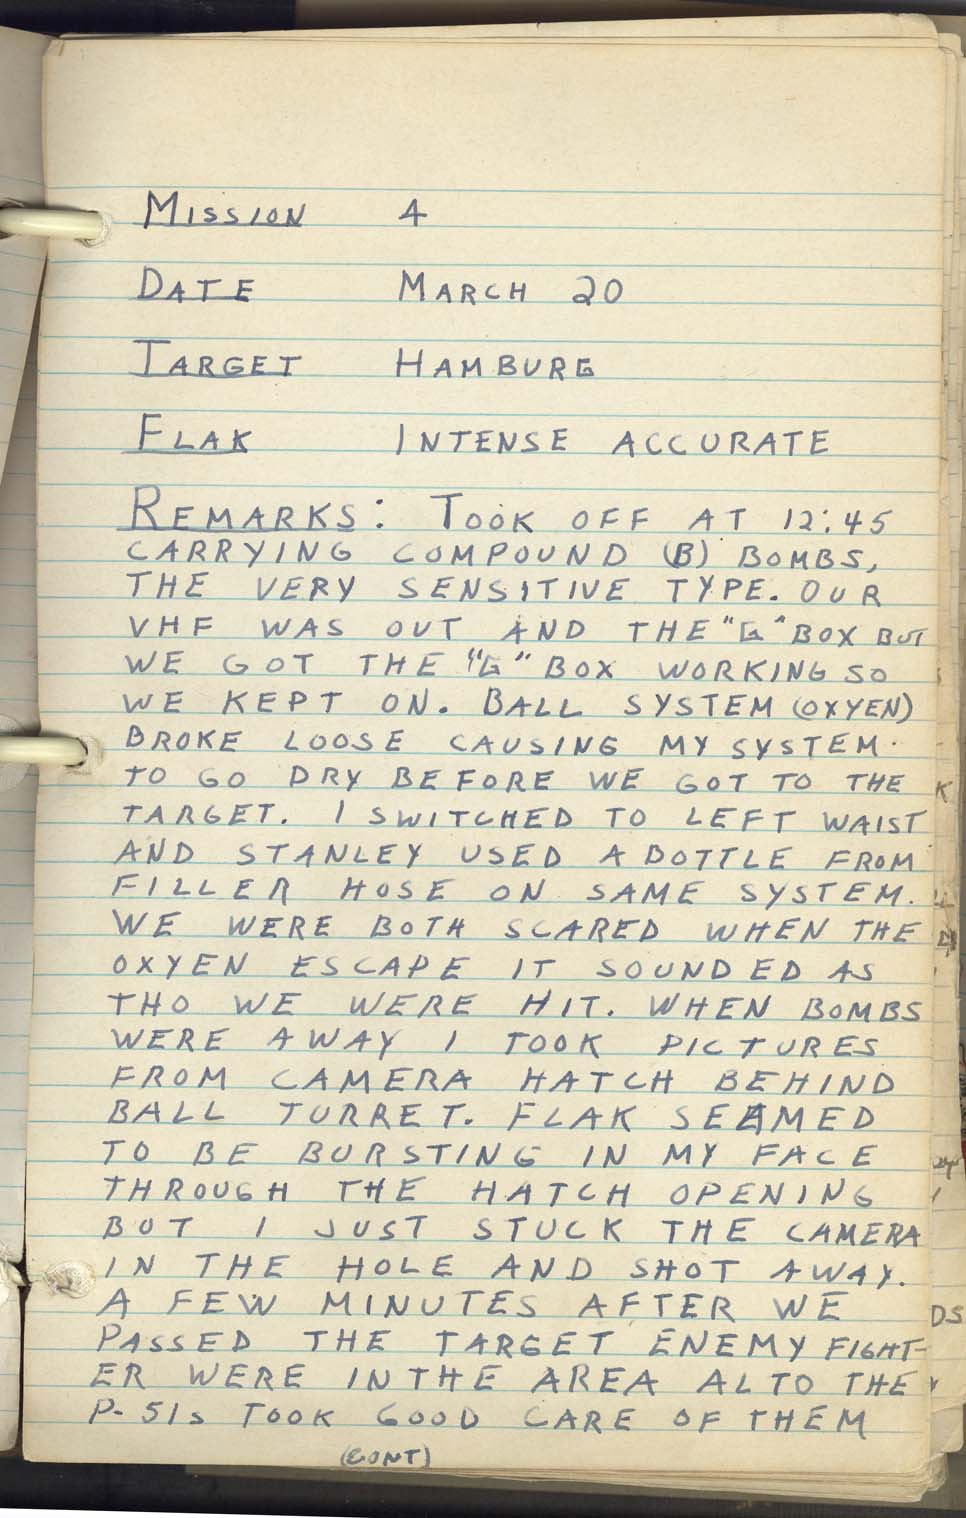 MISSION 4
DATE MARCH 20
TARGET HAMBURG
FLAK INTENSE ACCURATE
REMARKS: TOOK OFF AT 12:45
CARRYING COMPOUND (B) BOMBS,
THE VERY SENSITIVE TYPE. OUR
VHF WAS OUT AND THE "G" BOX BUT
WE GOT THE "G" BOX WORKING SO
WE KEPT ON. BALL SYSTEM (OXYEN)
BROKE LOOSE CAUSING MY SYSTEM
TO GO DRY BEFORE WE GOT TO THE
TARGET. I SWITCHED TO LEFT WAIST
AND STANLEY USED A BOTTLE FROM
FILLER HOSE ON SAME SYSTEM.
WE WERE BOTH SCARED WHEN THE
OXYEN ESCAPE IT SOUNDED AS
THO WE WERE HIT. WHEN BOMBS
WERE AWAY I TOOK PICTURES
FROM CAMERA HATCH BEHIND
BALL TURRET. FLAK SEAMED
TO BE BURSTING IN MY FACE
THROUGH THE HATCH OPENING
BUT I JUST STUCK THE CAMERA
IN THE HOLE AND SHOT AWAY.
A FEW MINUTES AFTER WE
PASSED THE TARGET ENEMY FIGHT-
ER WERE IN THE AREA AL TO THE
P-51s TOOK GOOD CARE OF THEM
(CONT)